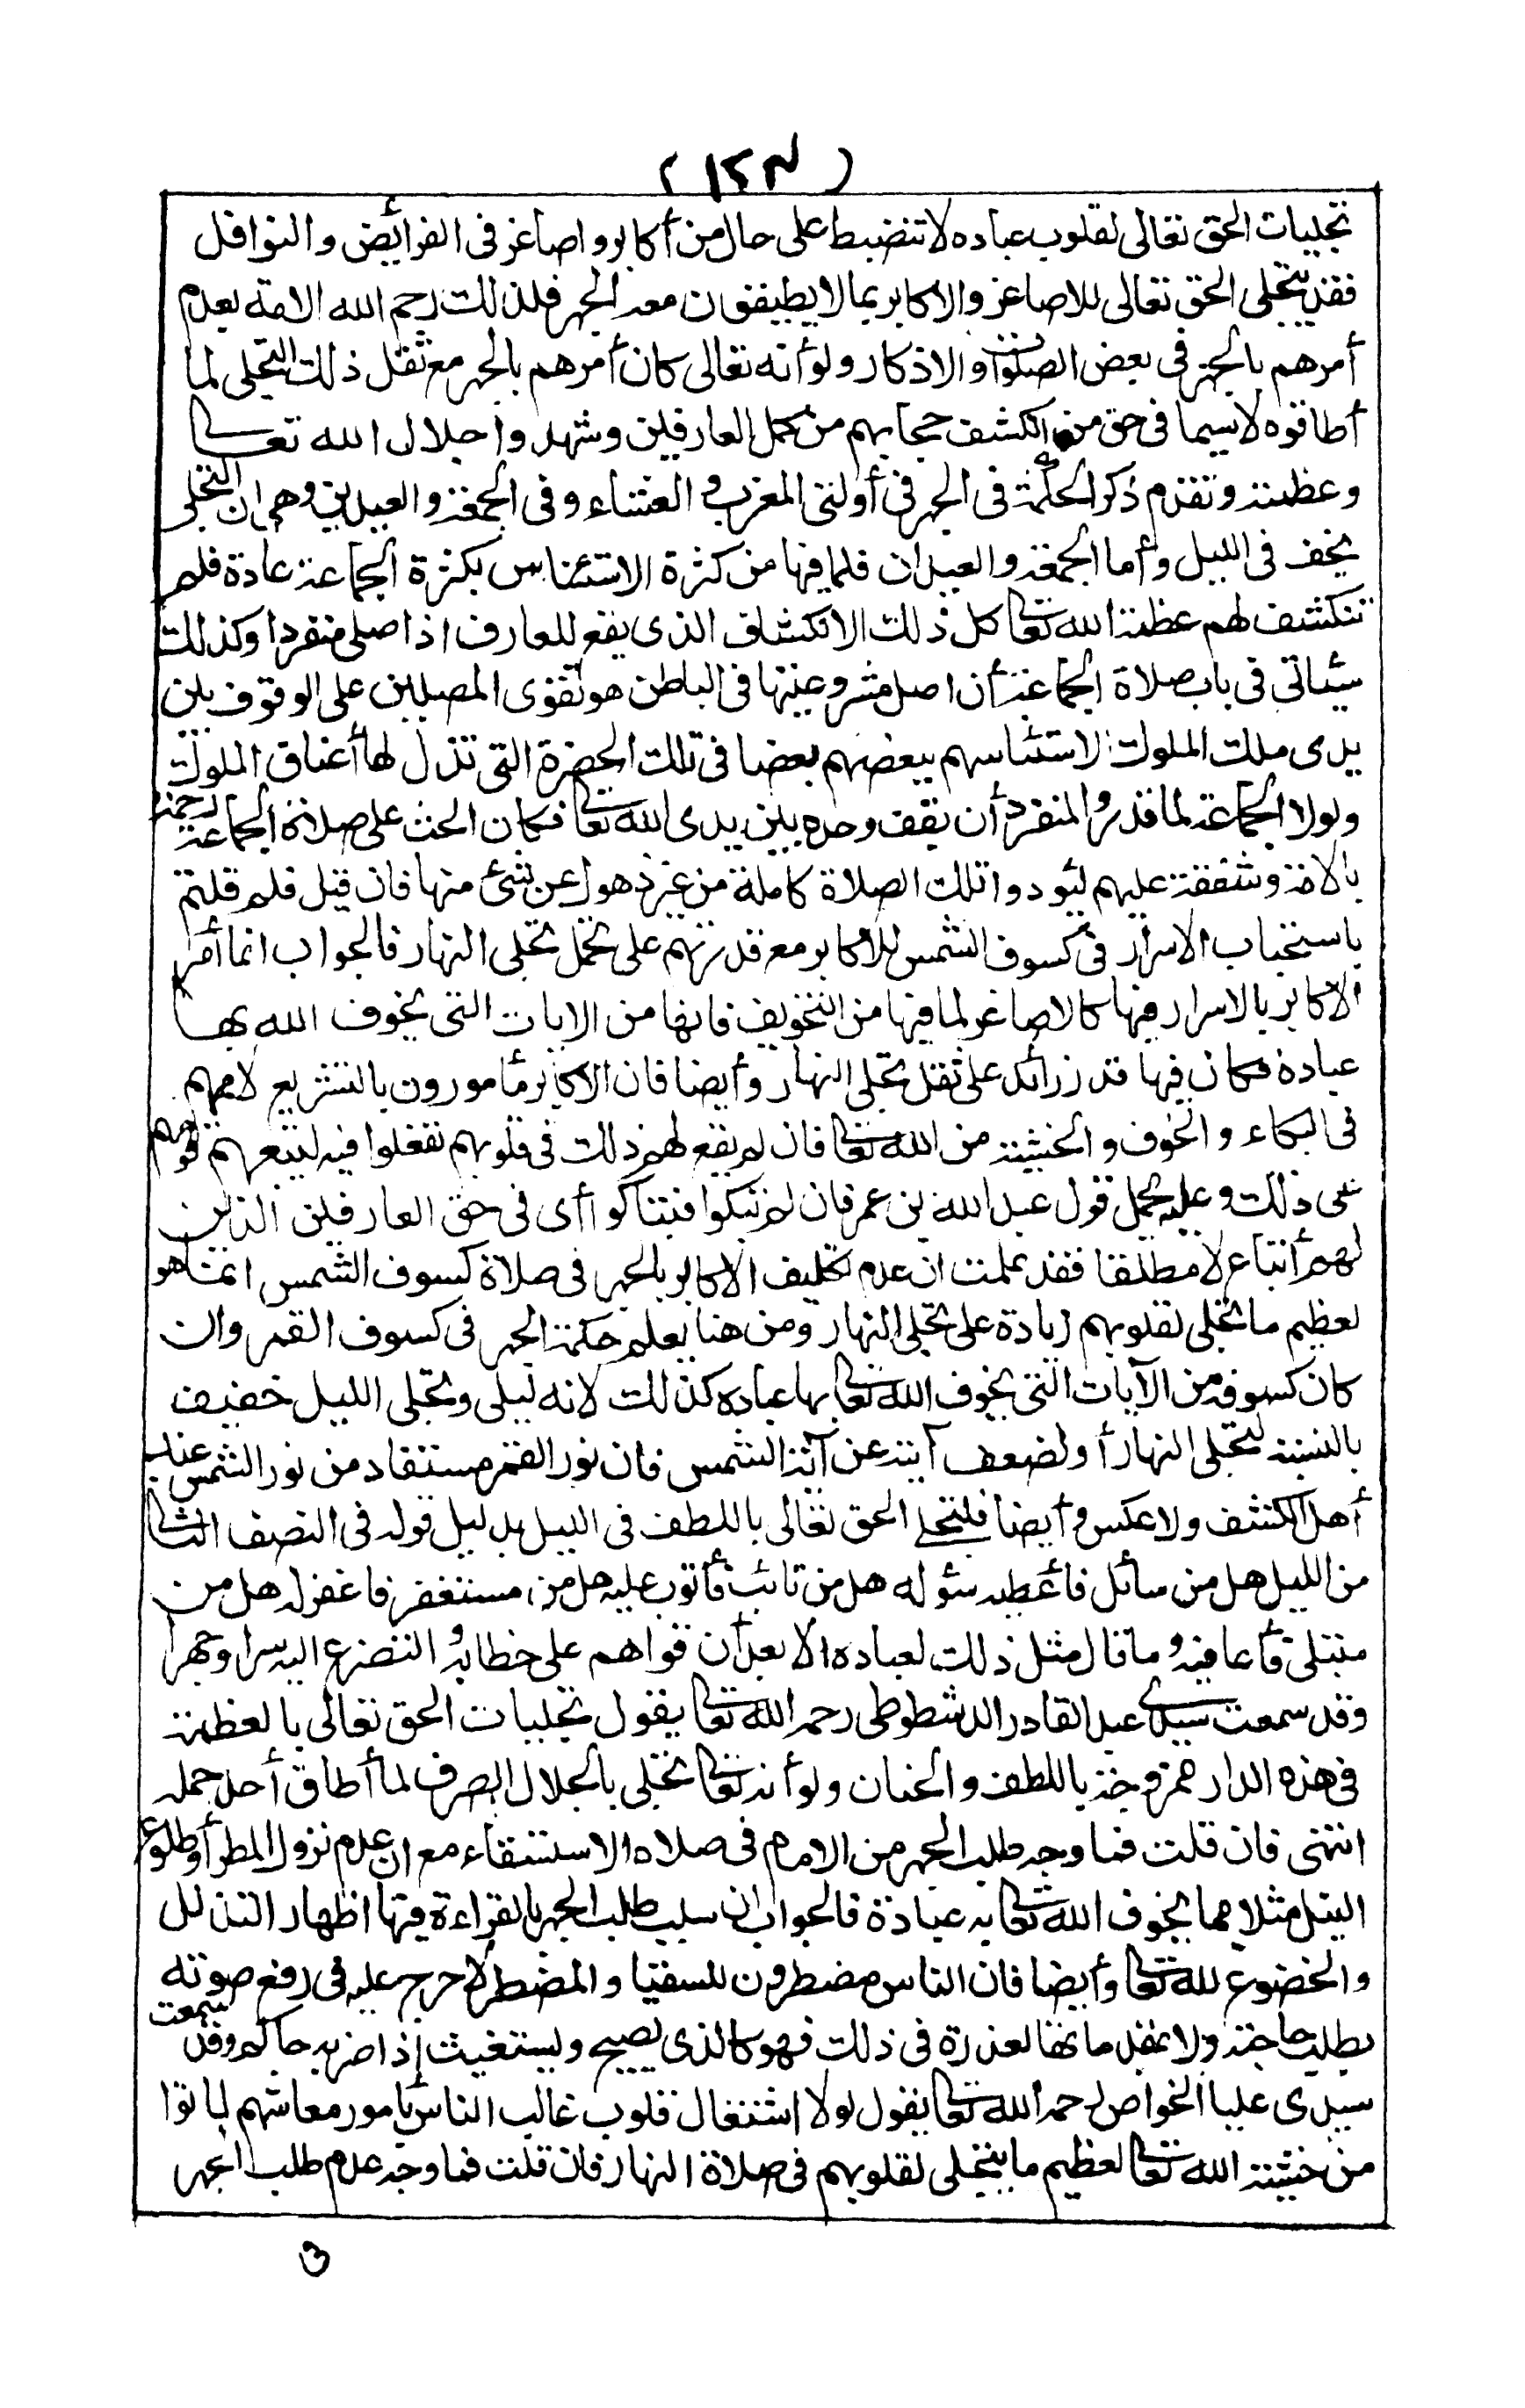 (١٢٣)
تجليات الحق تعالى لقلوب عباده لا تنضبط على حال من أكابر و اصاغر فى الفرائض والنوافل
فقد يتجلى الحق تعالى للاصاغر والاكابر بما لا يطيقون معه الجهر فلذلك رحم الله الامة بعدم
أمرهم بالجهر فى بعض الصلوات والاذكار ولو أنه تعالى كان أمرهم بالجهر مع ثقل ذلك التجلى لما
أطاقوه لا سيما فى حق من انكشف حجابهم من كمل العارفين وشهدوا جلال الله تعالى
وعظمته وتقدم ذكر الحكمة فى الجهر فى أولتى المغرب و العشاء وفى الجمعة والعيدين وهى ان التجلى
يخف فى الليل وأما الجمعة والعيدان فلما فيها من كثرة الاستئناس بكثرة الجماعة عادة فلم
تنكشف لهم عظمة الله تعالى كل ذلك الانكشاف الذى يقع للعارف اذا صلى منفردا وكذلك
سيأتى فى باب صلاة الجماعة أن اصل مشروعيتها فى الباطن هو تقوى المصلين على الوقوف بين
يدى ملك الملوك لاستئناسهم ببعضهم بعضا فى تلك الحضرة التى تذل لها أعناق الملوك
ولولا الجماعة لما قدر المنفرد أن يقف وحده بين يدى الله تعالى فكان الحث على صلاة الجماعة رحمة
بالامة وشفقة عليهم ليؤدوا تلك الصلاة كاملة من غير ذهول عن شئ منها فان قيل فلم قلتم
باستحباب الاسرار فى كسوف الشمس للاكابر مع قدرتهم على تحمل تجلى النهار فالجواب انما أمر
الاكابر بالاسرار فيها كالاصاغر لما فيها من التخويف فانها من الايات التى يخوف الله بها
عباده فكان فيها قدر زائد على ثقل تجلى النهار وأيضا فان الاكابر مأمورون بالتشريع لاممهم
فى البكاء والخوف والخشية من الله تعالى فان لم يقع لهم ذلك فى قلوبهم تفعلوا فيه ليتبعهم قومهم
على ذلك وعليه يحمل قول عبد الله بن عمر فان لم تبكوا فتباكوا أى فى حق العارفين الذين
لهم أتباع لا مطلقا فقد علمت ان عدم تكليف الاكابر بالجهر فى صلاة كسوف الشمس انما هو
لعظيم ما تجلى لقلوبهم زيادة على تجلى النهار ومن هنا يعلم حكمة الجهر فى كسوف القمر وان
كان كسوفه من الآيات التى يخوف الله تعالى بها عباده كذلك لانه ليلى وتجلى الليل خفيف
بالنسبة لتجلى النهار أو لضعف آيته عن آية الشمس فان نور القمر مستفاد من نور الشمس عند
أهل الكشف ولا عكس وأيضا فلتجلى الحق تعالى باللطف فى الليل بدليل قوله فى النصف الثانى
من الليل هل من سائل فأعطيه سؤله هل من تائب فأتوب عليه هل من مستغفر فاغفر له هل من
مبتلى فأعافيه وما قال مثل ذلك لعباده الا بعد أن قواهم على خطابه و التضرع اليه سرا وجهرا
وقد سمعت سيدى عبد القادر الدشطوطى رحمه الله تعالى يقول تجليات الحق تعالى بالعظمة
فى هذه الدار ممزوجة باللطف والحنان ولو أنه تعالى تجلى بالجلال الصرف لما أطاق أحد حمله
انتهى فان قلت فما وجه طلب الجهر من الامام فى صلاه الاستسقاء مع ان عدم نزول المطر أو طلوع
النيل مثلا مما يخوف الله تعالى به عباده فالجواب ان سبب طلب الجهر بالقراءة فيها اظهار التذلل
والخضوع لله تعالى وأيضا فان الناس مضطرون للسقيا والمضطر لا حرج عليه فى رفع صوته
بطلب حاجته ولا عقد مانعا لعذره فى ذلك فهو كالذى يصيح ويستغيث إذا ضربه حاكم وقد سمعت
سيدى عليا الخواص رحمه الله تعالى يقول لولا اشتغال قلوب غالب الناس بأمور معاشهم لماتوا
من خشية الله تعالى لعظيم ما يتجلى لقلوبهم فى صلاة النهار فان قلت فما وجه عدم طلب الجهر